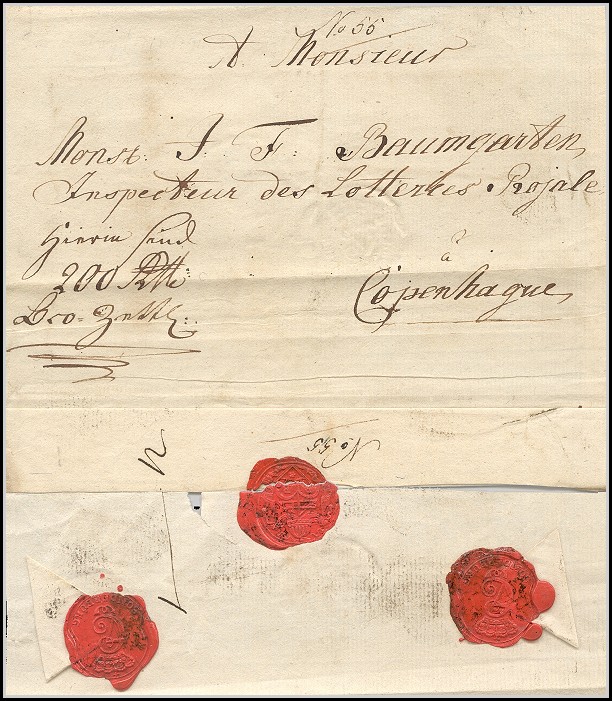 No 55.
A Monsieur
Monsr: J. F. Baumgarten,
Inspecteur des Lotteries Rojale
Hierin sind
200 Rtl:
à
Copenhague,
Bco-Zettl:
No 55